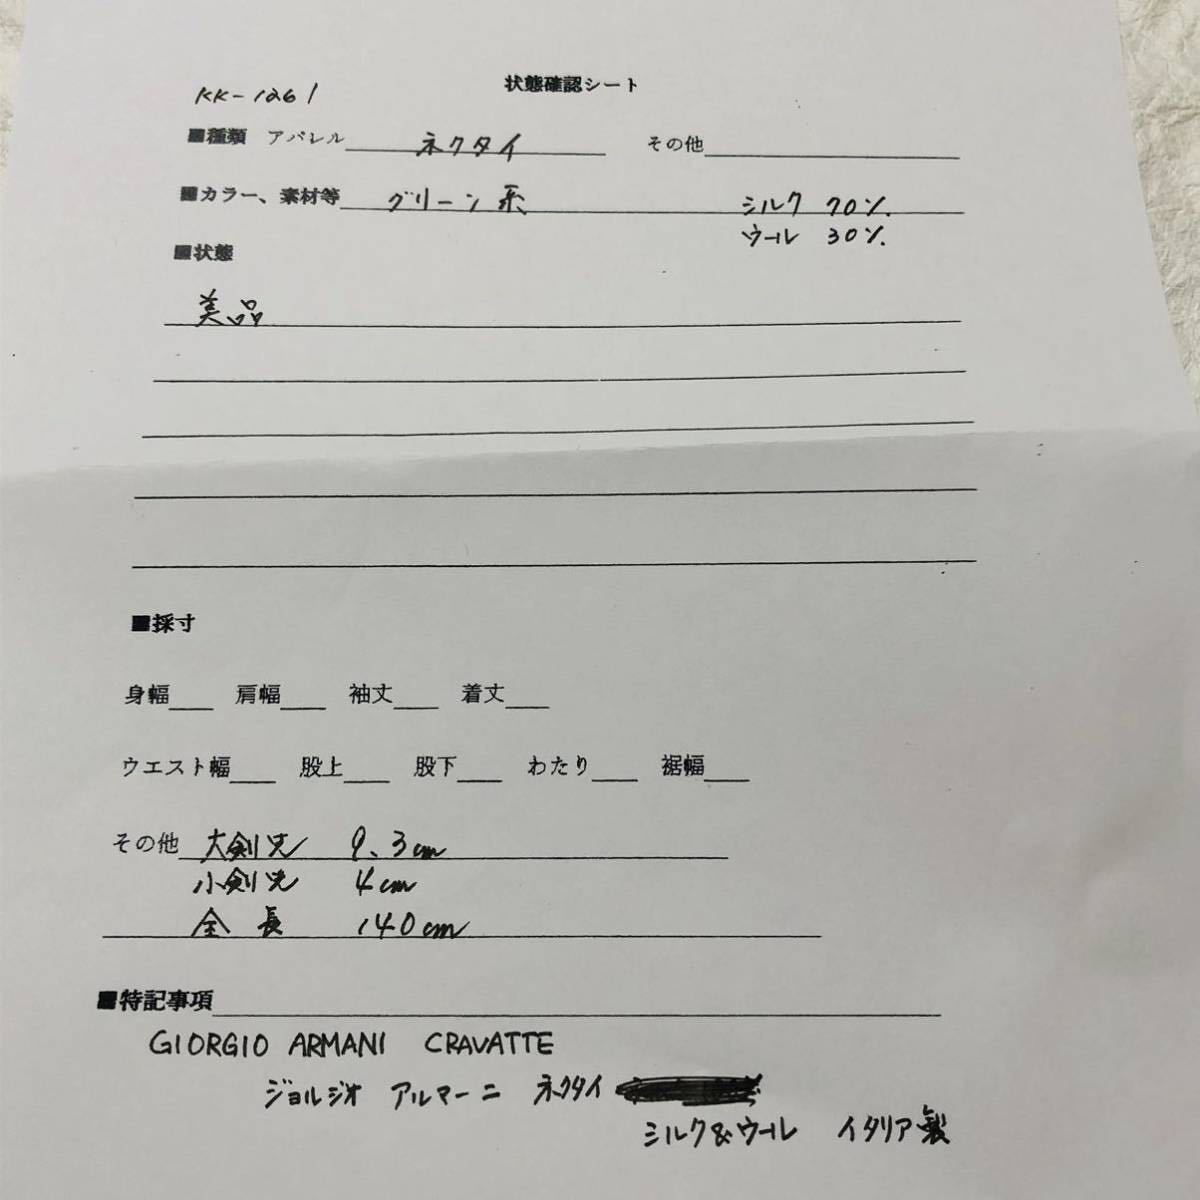 状態確認シート
KK-1261
■種類 アパレル ネクタイ その他
■カラー、素材等 グリーン系 シルク 70%.
ウール 30%.
■状態
美品
■採寸
身幅 肩幅 袖丈 着丈
ウエスト幅 股上 股下 わたり 裾幅
その他 大剣先 9.3cm
小剣先 4cm
全長 140cm
■特記事項
GIORGIO ARMANI CRAVATTE
ジョルジオ アルマーニ ネクタイ
シルク&ウール イタリア製